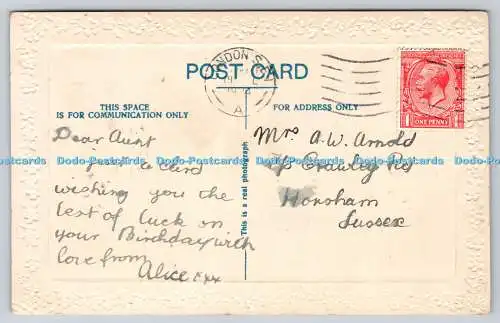 LONDON S.W.
POST CARD
THIS SPACE
IS FOR COMMUNICATION ONLY
FOR ADDRESS ONLY
This is a real photograph
ONE PENNY
Dear Aunt
Just a card
wishing you the
best of luck on
your Birthday with
love from
Alice xxx
Mrs A.W. Arnold
Crawley Rd
Horsham
Sussex
Dodo-Postcards Dodo-Postcards Dodo-Postcards Dodo-Postcards Dodo-Postcards